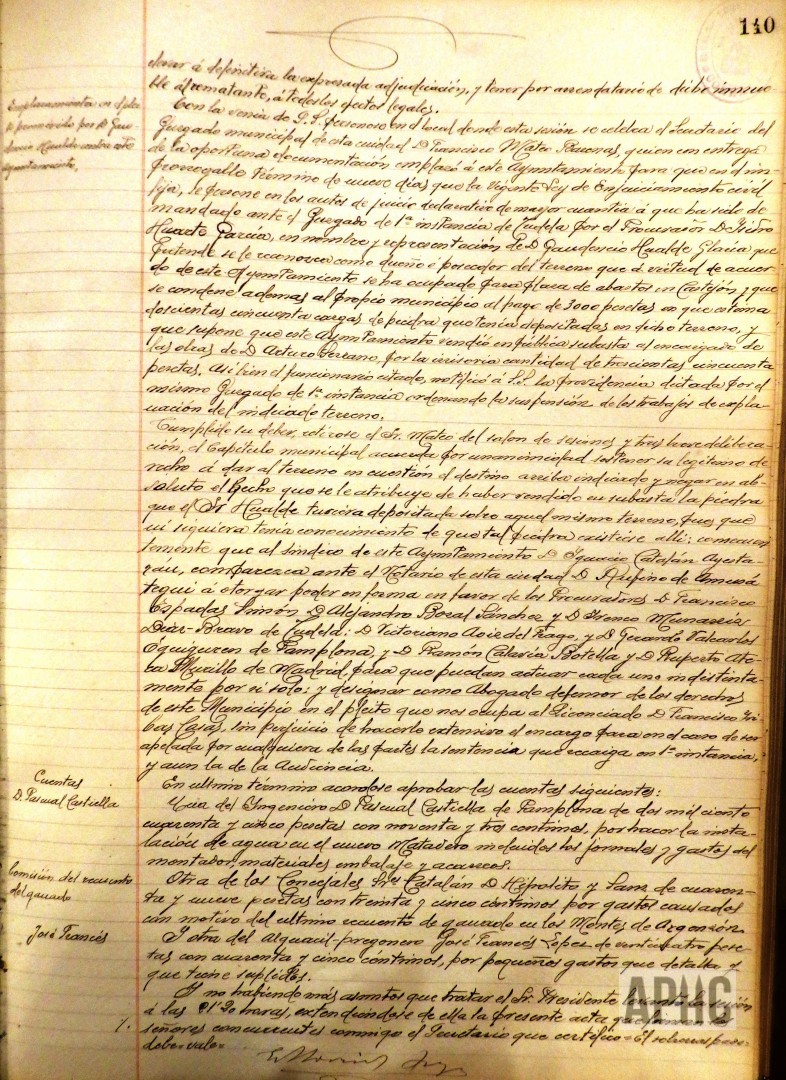 140
elevar á definitiva la expresada adjudicación, y tener por arrendatario de dicho inmue-
ble al rematante, á todos los efectos legales.
Emplazamiento en el plei-
to promovido por D. Gau-
dencio Hualde contra este
Ayuntamiento.
Con la venia de S.S. personose en el local donde esta sesión se celebra el Secretario del
Juzgado municipal de esta ciudad D. Francisco Mateo, quien con entrega
de la oportuna documentación emplazó á este Ayuntamiento para que en el im-
prorrogable término de nueve días que la vigente Ley de Enjuiciamiento civil
fija, se persone en los autos de juicio declarativo de mayor cuantía á que ha sido de-
mandado ante el Juzgado de 1ª instancia de Tudela por el Procurador D. Isidro
Huarte García, en nombre y representación de D. Gaudencio Hualde que
pretende se le reconozca como dueño é poseedor del terreno que á virtud de acuer-
do de este Ayuntamiento se ha ocupado para plaza de abastos en Castejón, y que
se condene además al propio municipio al pago de 3000 pesetas en que estima
doscientas cincuenta cargas de piedra que tenía depositadas en dicho terreno, y
que supone que este Ayuntamiento vendió en pública subasta al encargado de
las obras de D. Arturo Serrano, por la irrisoria cantidad de trescientas cincuenta
pesetas. Así bien el funcionario citado, notificó á S.S. la providencia dictada por el
mismo Juzgado de 1ª instancia ordenando la suspensión de los trabajos de expla-
nación del indicado terreno.
Cumplido su deber, retirose el Sr. Mateo del salon de sesiones y tras breve delibera-
ción, el Capítulo municipal acuerda por unanimidad sostener su legítimo de-
recho á dar al terreno en cuestión el destino arriba indicado y negar en ab-
soluto el hecho que se le atribuye de haber vendido en subasta la piedra
que el Sr. Hualde tuviera depositada sobre aquel mismo terreno, pues que
ni siquiera tenía conocimiento de que tal piedra existiese allí: consecuen-
temente que el Síndico de este Ayuntamiento D. Ignacio Catalán Ayesta-
rán, comparezca ante el Notario de esta ciudad D. Rufino de Amusá-
tegui á otorgar poder en forma en favor de los Procuradores D. Francisco
Espadas Simón D. Alejandro Boral Sánchez y D. Ireneo Munarriz
Diaz-Bravo de Tudela: D. Victoriano del Frago, y D. Gerardo Valcarlos
Eguiguren de Pamplona, y D. Ramón Botella y D. Ruperto
Murillo de Madrid, para que puedan actuar cada uno indistinta-
mente por sí solo: y designar como Abogado defensor de los derechos
de este Municipio en el pleito que nos ocupa al Licenciado D. Francisco Ri-
bas Casas, sin perjuicio de hacerlo extensivo el encargo para en el caso de ser
apelada por cualquiera de las partes la sentencia que recaiga en 1ª instancia,
y aun la de la Audiencia.
Cuentas
D. Pascual Castiella
En último término acordose aprobar las cuentas siguientes:
Una del Ingeniero D. Pascual Castiella de Pamplona de dos mil ciento
cuarenta y cinco pesetas con noventa y tres centimos, por hacer la insta-
lación de agua en el nuevo Matadero incluidos los jornales y gastos del
montador, materiales embalaje y acarreos.
Comisión del recuento
del ganado
Otra de los Concejales Sres. Catalán D. Hipólito y Sanz de cuaren-
ta y nueve pesetas con treinta y cinco centimos por gastos causados
con motivo del ultimo recuento de ganado en los Montes de Argenzón.
José Francés
Y otra del alguacil-pregonero José Francés Lopez de veinticuatro pese-
tas con cuarenta y cinco centimos, por pequeños gastos que detalla y
que tiene suplidos.
Y no habiendo más asuntos que tratar el Sr. Presidente levantó la sesión
á las horas, extendiéndose de ella la presente acta que firman los
señores concurrentes conmigo el Secretario que certifico =
APHG